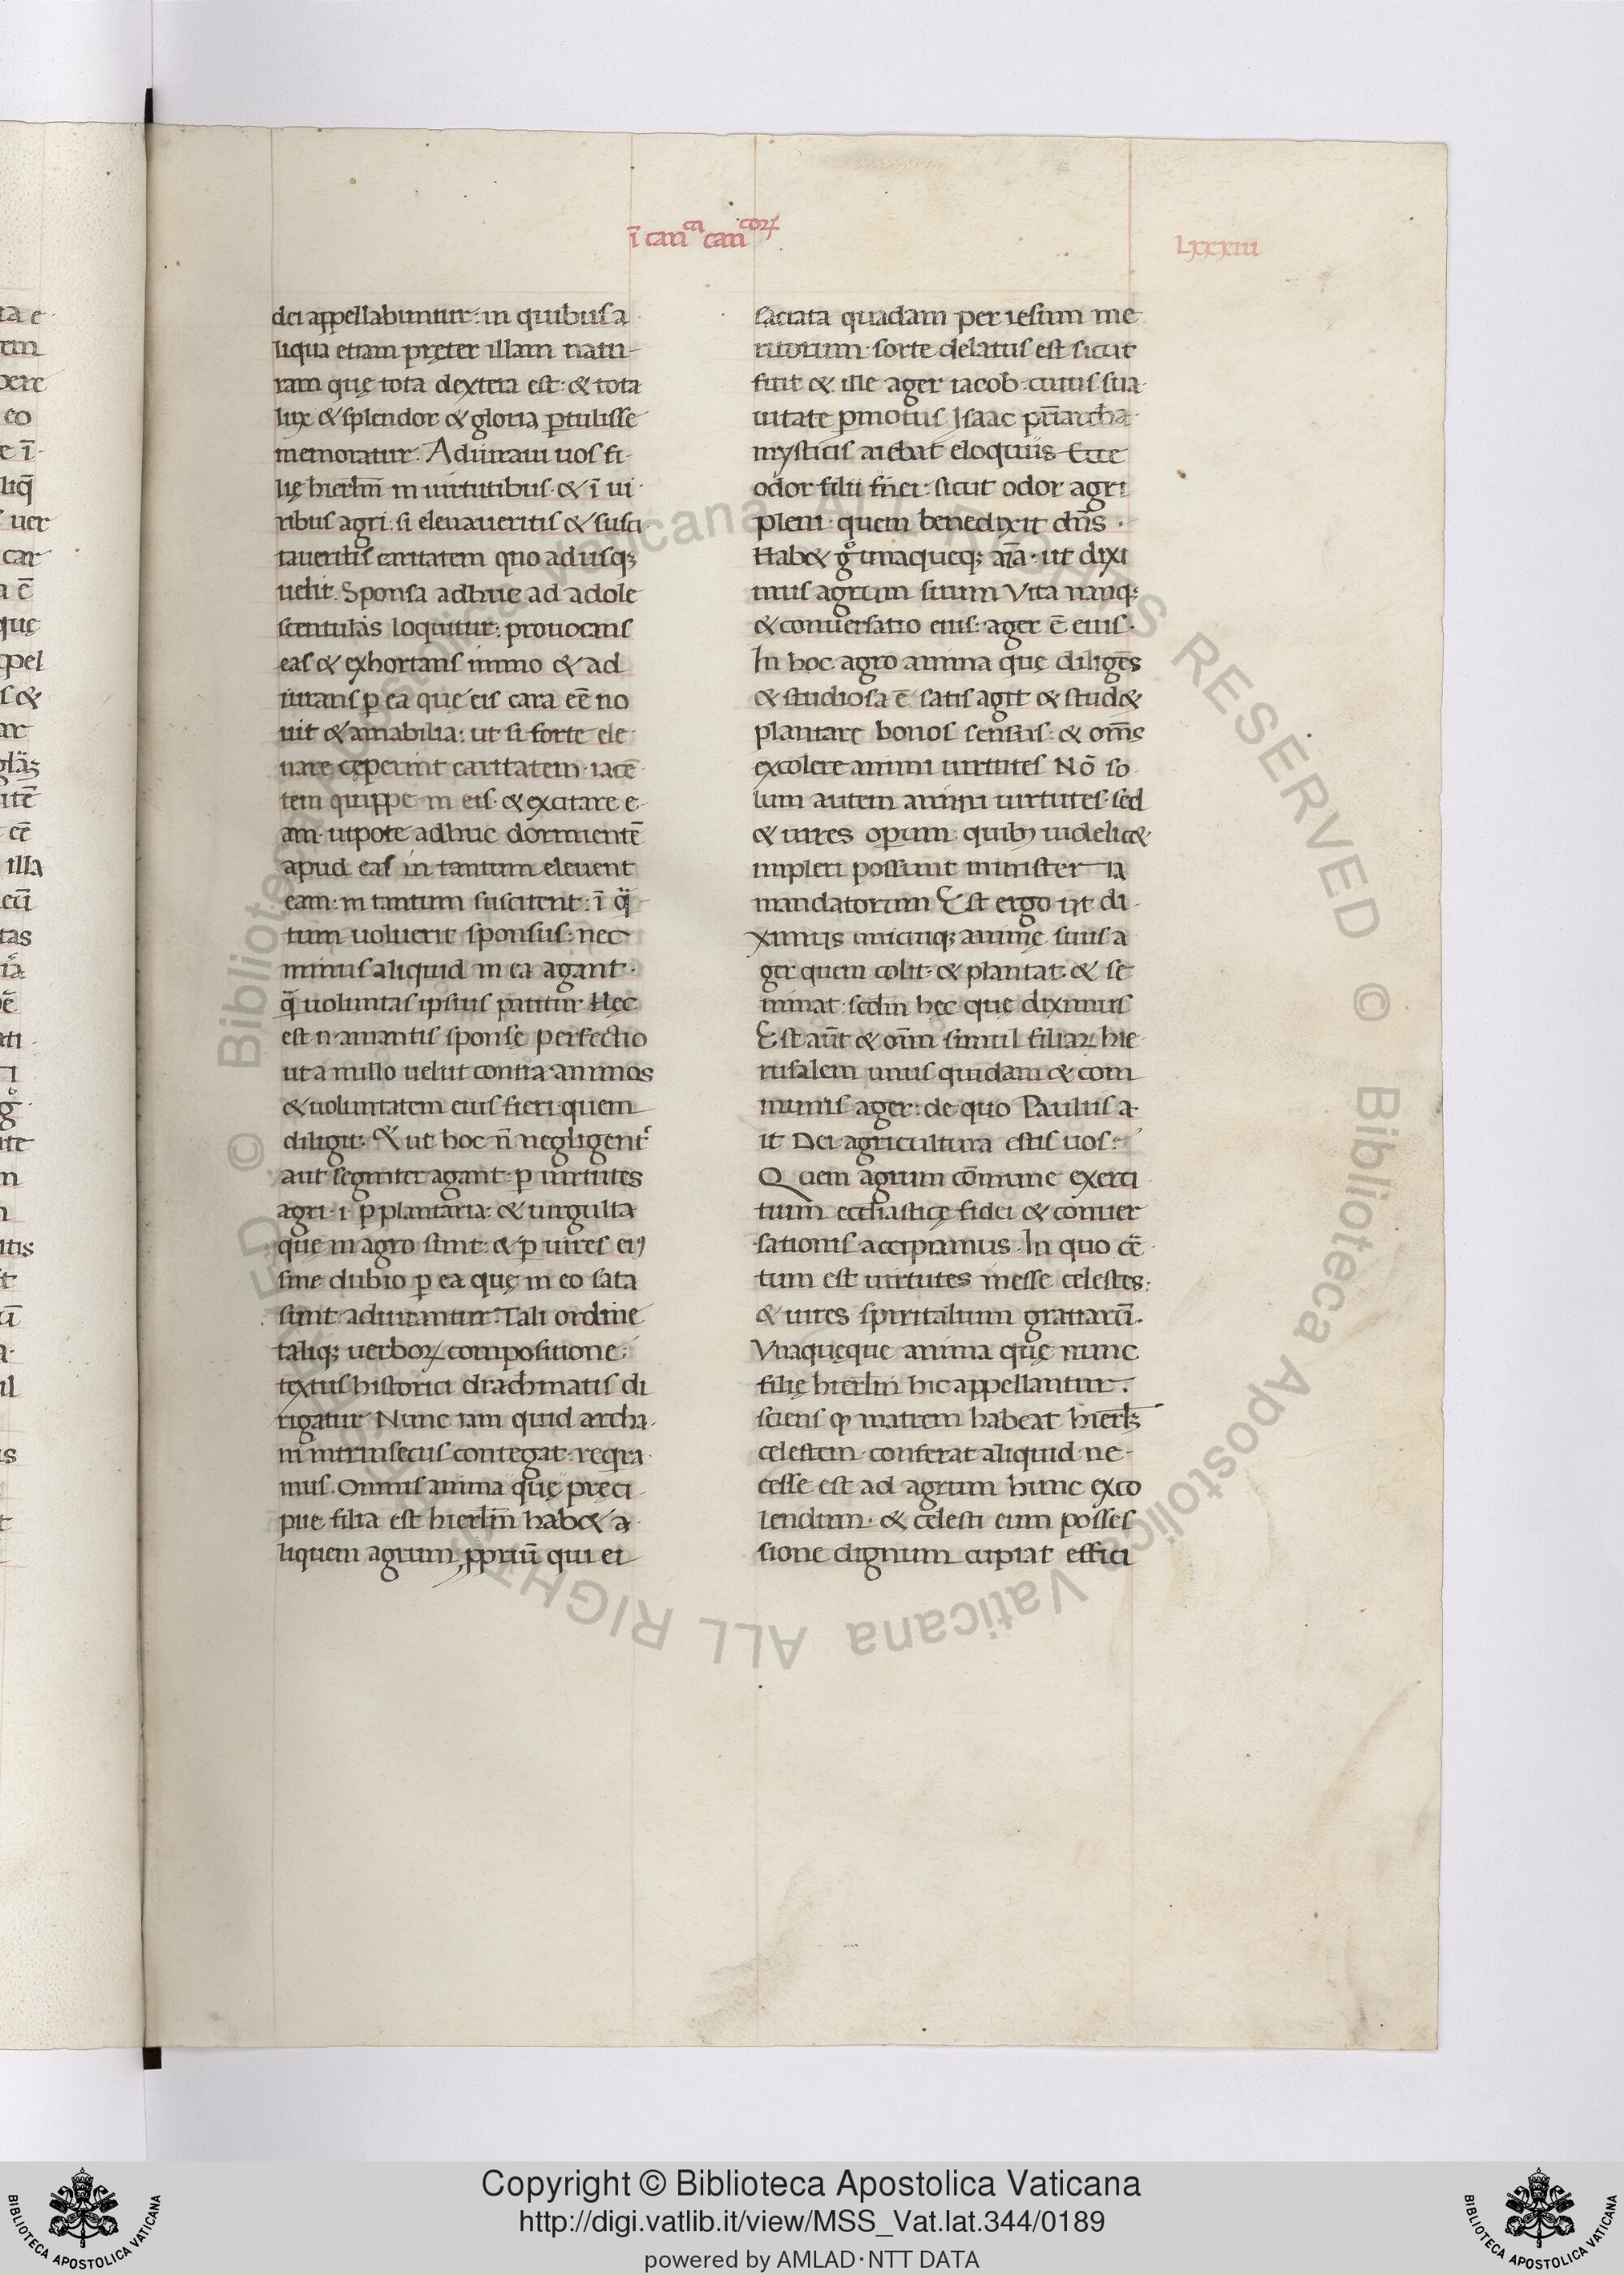 ī canᶜᵃ canᶜᵒꝝ
Lxxxiii
dei appellabuntur: in quibus a
liqua etiam pręter illam natu-
ram quę tota dextera est: & tota
lux & splendor & gloria ꝑtulisse
memoratur. Adiuraui uos fi-
lię hierlm̄ in uirtutibus· & ī ui-
ribus agri: si eleuaueritis & susci-
taueritis caritatem quo adusq;
uelit. Sponsa adhuc ad adole
scentulas loquitur: prouocans
eas & exhortans immo & ad
iurans ꝑ ea quę eis cara eē no
uit & amabilia: ut si forte ele-
uare cęperint caritatem· iacē-
tem quippe in eis· & excitare e-
am· utpote adhuc dormientē
apud eas in tantum eleuent
eam· in tantum suscitent: ī qͣ-
tum uoluerit sponsus: nec
minus aliquid in ea agant·
qͣ uoluntas ipsius patitur Hęc
est n· amantis sponsę perfectio
ut a nullo uelut contra animos
& uoluntatem eius fieri quem
diligit: & ut hoc n̄ negligent᷑
aut segniter agant: ꝑ uirtutes
agri· i· ꝑ plantaria: & uirgulta
quę in agro sunt: & ꝑ uires ei⁹
sine dubio ꝑ ea quę in eo sata
sunt: adiurantur. Tali ordine
taliq; uerboꝝ compositione:
textus historici drachmatis di
rigatur Nunc iam quid archa-
ni intrinsecus contegat· reqͥra-
mus. Omnis anima quę pręci-
pue filia est hierlm̄ hab& a-
liquem agrum ꝓpriū qui ei
sacrata quadam per iesum me
ritorum sorte delatus est sicut
fuit & ille ager iacob· cuius sua-
uitate ꝑmotus Isaac pr̄iarcha·
mysticis aiebat eloquiis Ecce
odor filii mei: sicut odor agri
pleni· quem benedixit dn̄s·
Hab& gͦ unaqueq; aīa· ut dixi
mus agrum suum Vita nanq;
& conuersatio eius: ager ē eius·
In hoc agro anima quę diligēs
& studiosa ē satis agit & stud&
plantare bonos sensus: & om̄s
excolere animi uirtutes Nō so-
lum autem animi uirtutes· sed
& uires operum· quib⁹ uidelic&
impleri possunt minister ia
mandatorum Est ergo ut di-
ximus unicuiq; animę suus a
ger quem colit· & plantat· & se
minat: sedm̄ hęc quę diximus
Est aūt & omīm simul filiaꝝ hie
rusalem unus quidam & com
munis ager: de quo Paulus a-
it Dei agricultura estis uos:
Quem agrum cōmune exerci
tium ecclīasticę fidei & conuer
sationis accipiamus· In quo cͤ-
tum est uirtutes inesse celestes:
& uires spiritalium gratiarū·
Vnaquęque anima quę nunc
filię hierlm̄ hic appellantur:
sciens ꝙ matrem habeat hierlz̄
celestem· conferat aliquid ne-
cesse est ad agrum hunc exco
lendum· & celesti eum posses
sione dignum cupiat effici
Copyright © Biblioteca Apostolica Vaticana
http://digi.vatlib.it/view/MSS_Vat.lat.344/0189
powered by AMLAD·NTT DATA
BIBLIOTECA APOSTOLICA VATICANA
BIBLIOTECA APOSTOLICA VATICANA